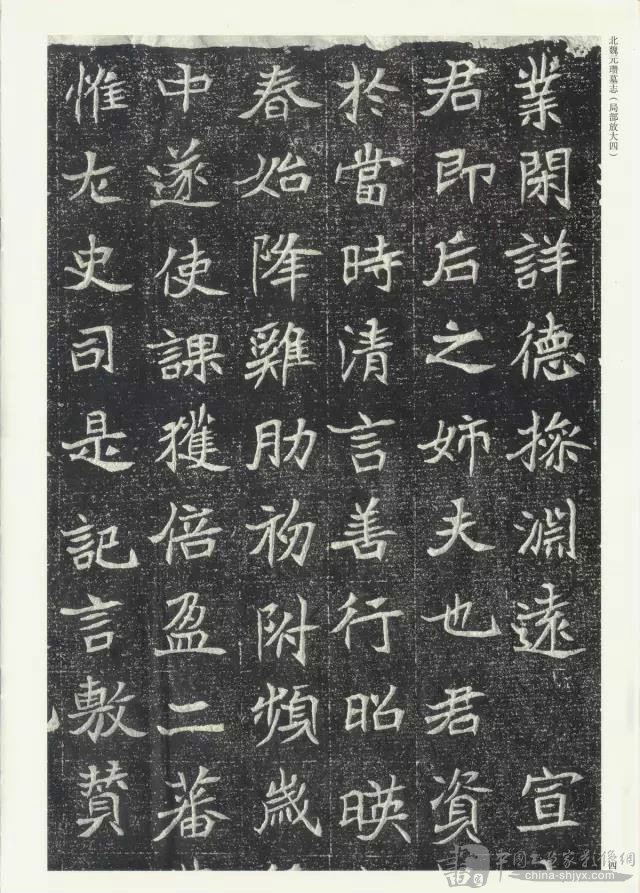 北魏元瓚墓志(局部放大四)
業閑詳德操淵遠 宣
君即后之姉夫也君資
於當時清言善行昭暎
春始降雞肋初附頻歲
中遂使課獲倍盈二蕃
惟左史司是記言敷贊
四
中国书法家影像网
china-shjyx.com